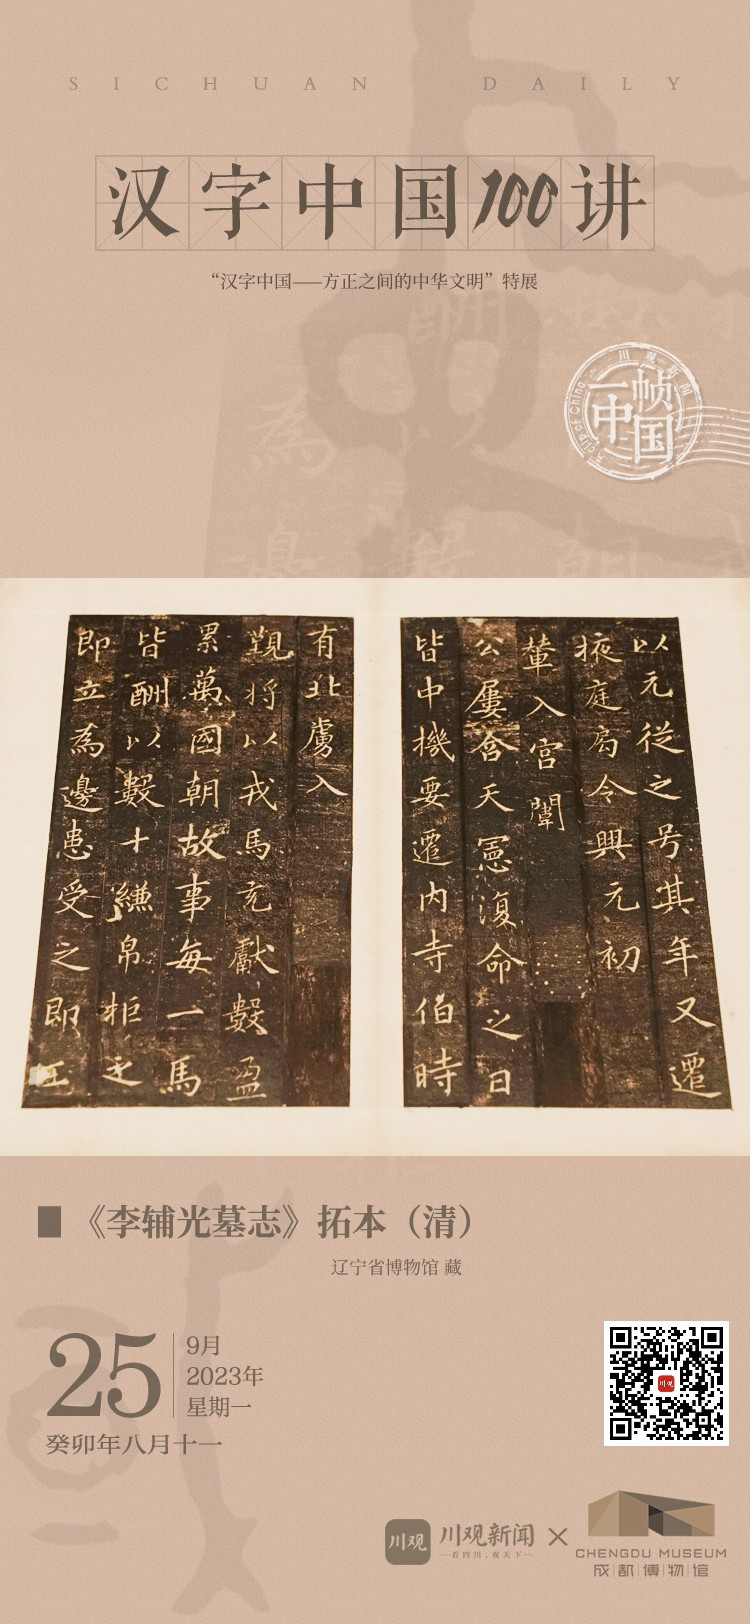 SICHUAN DAILY
汉字中国100讲
“汉字中国——方正之间的中华文明”特展
川观新闻
一帧
中国
A clip of China
以元従之号其年又遷
掖庭局令興元初
輦入宫闈
公屢含天憲復命之日
皆中機要遷内寺伯時
有北虜入
覲将以戎馬充獻數盈
累萬國朝故事每一馬
皆酬以數十縑帛拒之
即立為邊患受之即王
《李辅光墓志》拓本（清）
辽宁省博物馆 藏
25
9月
2023年
星期一
癸卯年八月十一
川观
川观新闻
看四川，观天下
CHENGDU MUSEUM
成都博物馆